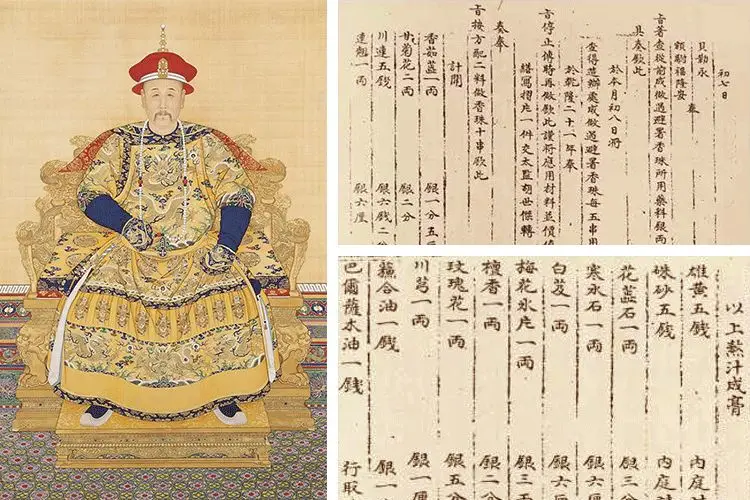 初七日
貝勒永
額駙福隆安 奉
旨著查從前成做過避暑香珠所用藥料銀兩
具奏欽此
於本月初八日將
查得造辦處成做過避暑香珠每五串用
於乾隆二十一年奉
旨停止傳時再做欽此謹將應用材料並價
繕寫摺片一件交太監胡世傑轉
奏奉
旨按方配二料做香珠十串欽此
計開
香茹 一兩 銀一分五厘
甘菊花二兩 銀二分
川連五錢 銀六錢二分
連翹一兩 銀六厘
以上熬汁成膏
雄黃五錢 內庭
硃砂五錢 內庭
花蕊石一兩 銀三
寒水石一兩 銀六厘
白芨一兩 銀六厘
梅花氷片一兩 銀三
檀香一兩 銀二分
玫瑰花一兩 銀五分
川芎一兩 銀一厘
蘇合油一錢 銀一
巴爾薩木油一錢 行取